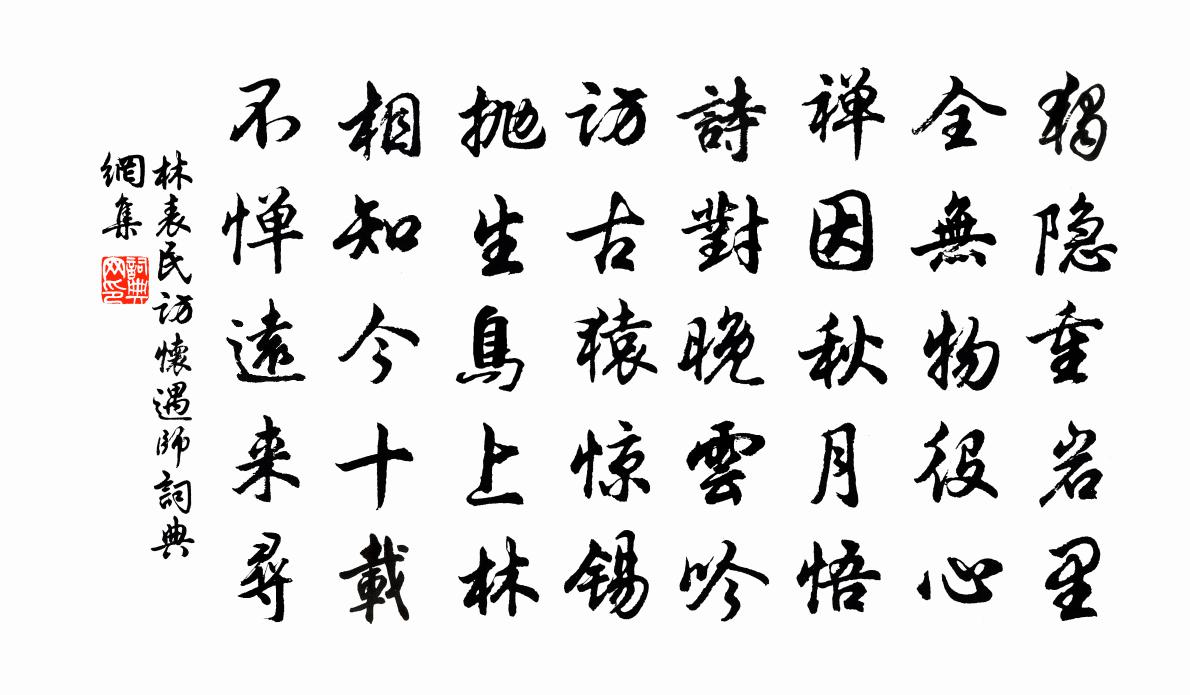 獨隐重岩里
全無物役心
禅因秋月悟
詩對晚雲吟
訪古猿惊锡
抛生鳥上林
相知今十載
不惮遠来尋
林表民訪懷遇師詞典
網集
詞典
网印